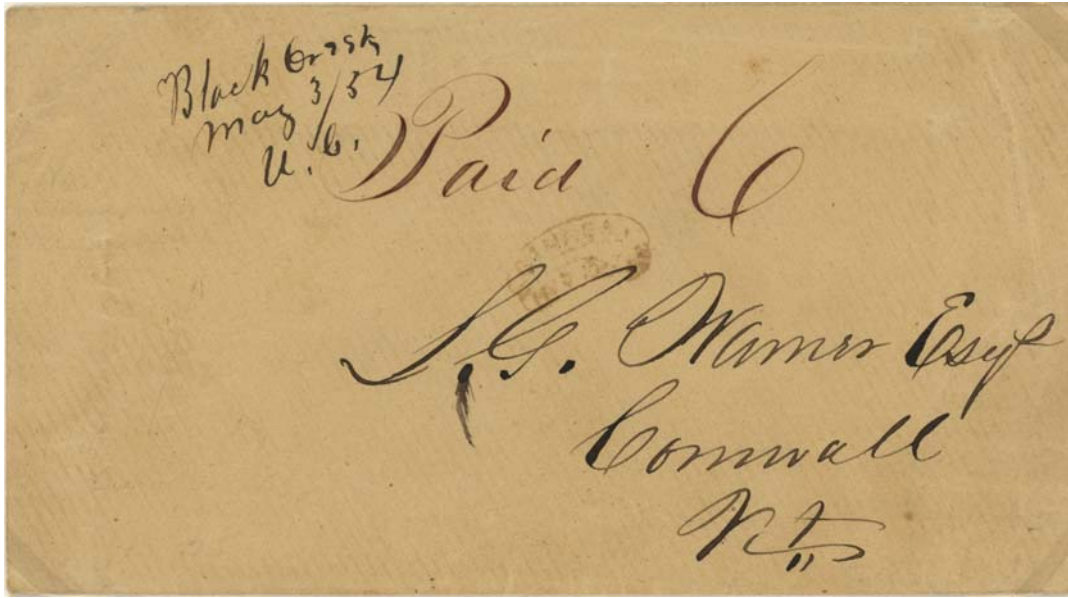 Black Creek
May 3/54
U.C.
Paid 6
CANADA
S. G. Warner Esqr
Cornwall
Vt